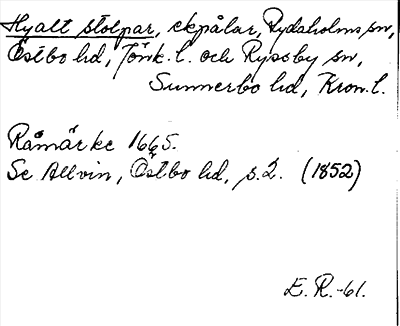 Hyalt stolpar, ekpålar, Rydaholms sn,
Östbo hd, Jönk. l. och Ryssby sn,
Sunnerbo hd, Kron. l.
Råmärke 1665.
Se Allvin, Östbo hd, s. 2. (1852)
E. R. -61.